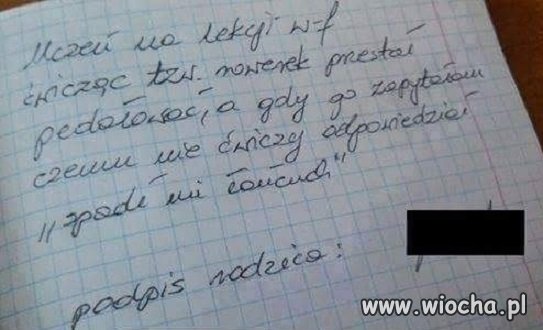 Uczeń na lekcji w-f
ćwicząc tzw. rowerek przestał
pedałować, a gdy go zapytałam
czemu nie ćwiczy odpowiedział
„spadł mi łańcuch"
podpis rodzica:
www.wiocha.pl